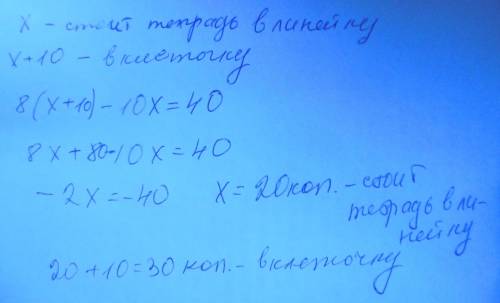 х - стоит тетрадь в линейку
х+10 - в клеточку
8(х+10)-10х=40
8х+80-10х=40
-2х=-40 х=20коп. - стоит
тетрадь в ли-
нейку
20+10=30 коп. - в клеточку